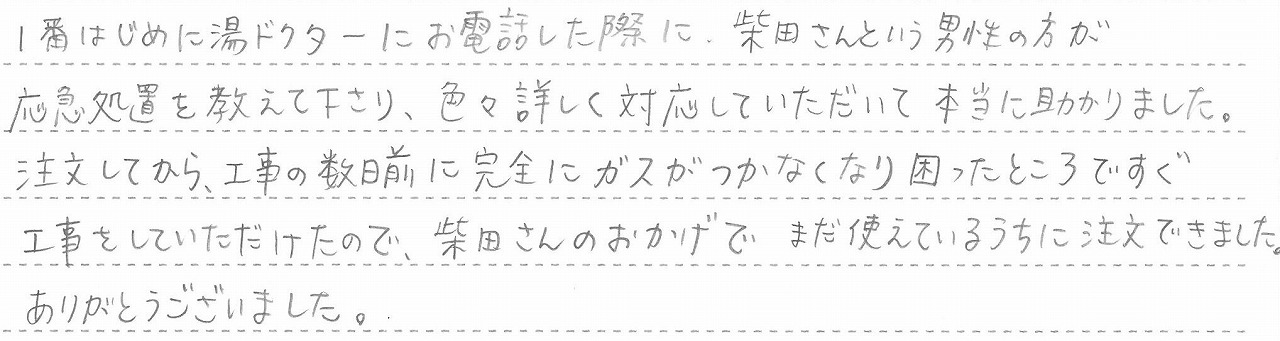 1番はじめに湯ドクターにお電話した際に、柴田さんという男性の方が
応急処置を教えて下さり、色々詳しく対応していただいて本当に助かりました。
注文してから、工事の数日前に完全にガスがつかなくなり困ったところですぐ
工事をしていただけたので、柴田さんのおかげで まだ使えているうちに注文できました。
ありがとうございました。